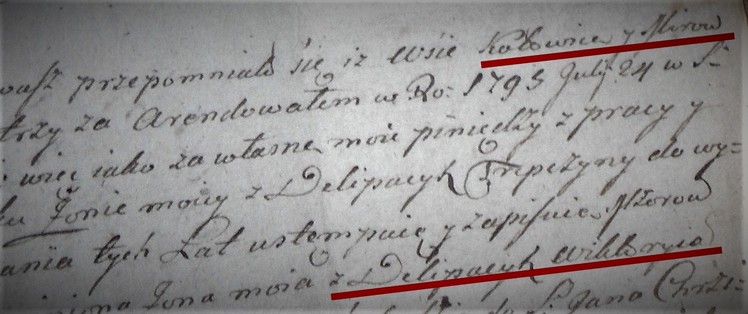 przepomniało się iż wsie Kotowice y Mirow
trzy za Arendowałem w Ro: 1793 July 24 w S.
więc iako za własne moie piniedzy z pracy y
Żonie moiey z Delipacyk Trpczyny do wy=
ania tych Lat ustempuię y zapisuie Mzorow
iona Żona moia z Delipacyk Wiktoryia
S. Jana Chrzci